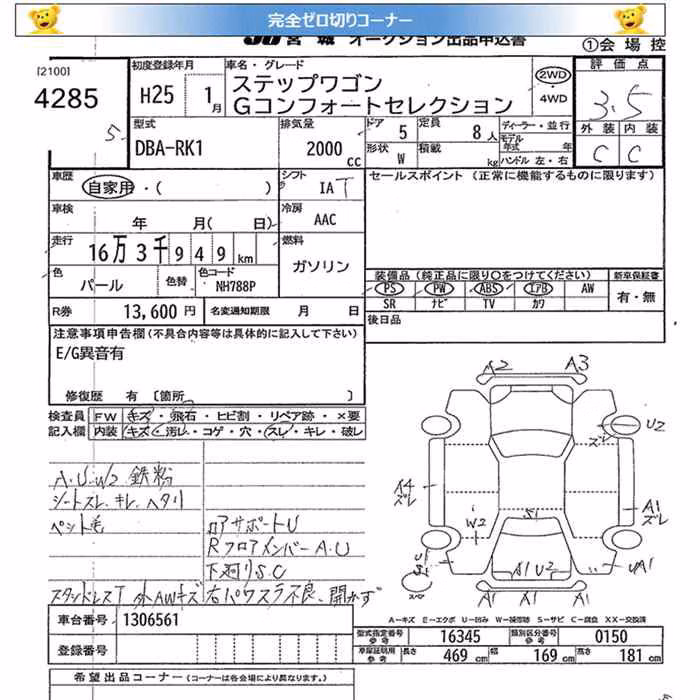 完全ゼロ切りコーナー
JU宮城 オークション出品申込書
①会場控
[2100]
4285
5
初度登録年月
H25 1月
車名・グレード
ステップワゴン
Gコンフォートセレクション
2WD
・
4WD
評価点
3.5
外装 内装
C C
型式
DBA-RK1
排気量
2000 cc
ドア 5
定員 8人
形状 W
積載 kg
ディーラー・並行
モデル年式 年
ハンドル 左・右
車歴
自家用・( )
シフト
IAT
セールスポイント (正常に機能するものに限ります)
車検
年 月(日)
冷房
AAC
走行
16万3千949km
燃料
ガソリン
色
パール
色替
色コード
NH788P
装備品(純正品に限り○をつけてください)
新車保証書
PS PW ABS エアB AW
SR ナビ TV カワ
有・無
R券
13,600円
名変通知期限 月 日
後日品
注意事項申告欄(不具合内容等は具体的に記入して下さい)
E/G異音有
修復歴 有 [箇所 ]
検査員記入欄
FW キズ・飛石・ヒビ割・リペア跡・×要
内装 キズ・汚レ・コゲ・穴・スレ・キレ・破レ
A.U.W2 鉄粉
シートスレ.キレ.ヘタリ
ペット毛
ロアサポートU
RフロアメンバーA.U
下廻りS.C
スタッドレスT 外AWキズ 右パワスラ不良、開かず
A2 A3
U2
ズレ
A4
ズレ
A1
ズレ
W2
S1
U1
S1
A1 U2
UA1
A1 A1 A1
A-キズ E-エクボ U-凹み W-補修跡 S-サビ C-腐食 XX-交換済
車台番号
1306561
型式指定番号 参考
16345
類別区分番号 参考
0150
登録番号
車庫証明用 参考
長さ 469cm
幅 169cm
高さ 181cm
希望出品コーナー(コーナーは各会場により異なります。)